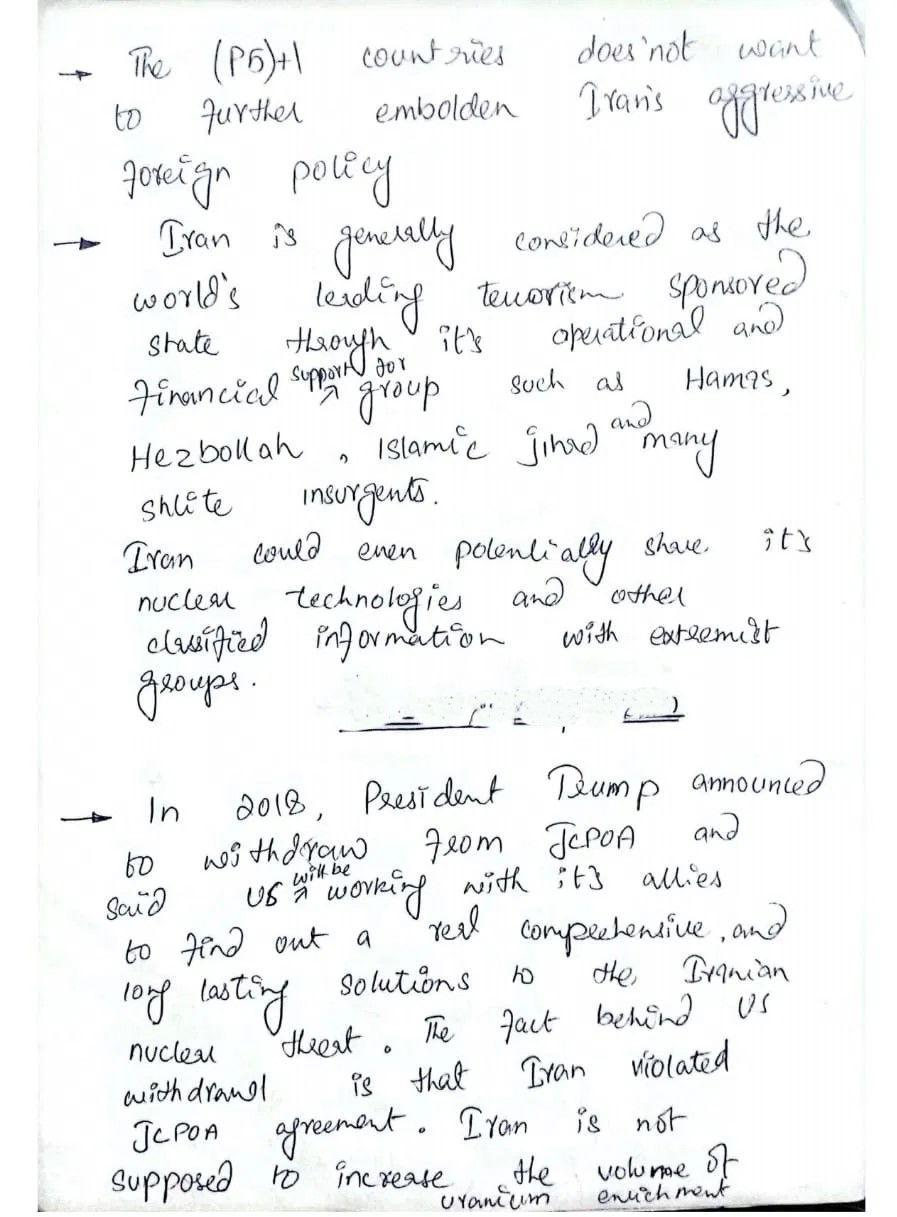 → The (P5)+1 countries does'not want
to further embolden Iran's aggressive
foreign policy
→ Iran is generally considered as the
world's leading terrorism sponsored
state through it's operational and
financial support for group such as Hamas,
Hezbollah, Islamic jihad and many
Shiite insurgents.
Iran could even potentially share it's
nuclear technologies and other
classified information with extremist
groups.
→ In 2018, President Trump announced
to withdraw from JCPOA and
said US will be working with it's allies
to find out a real comprehensive, and
long lasting solutions to the Iranian
nuclear threat. The fact behind US
withdrawl is that Iran violated
JCPOA agreement. Iran is not
supposed to increase the volume of
uranium enrichment